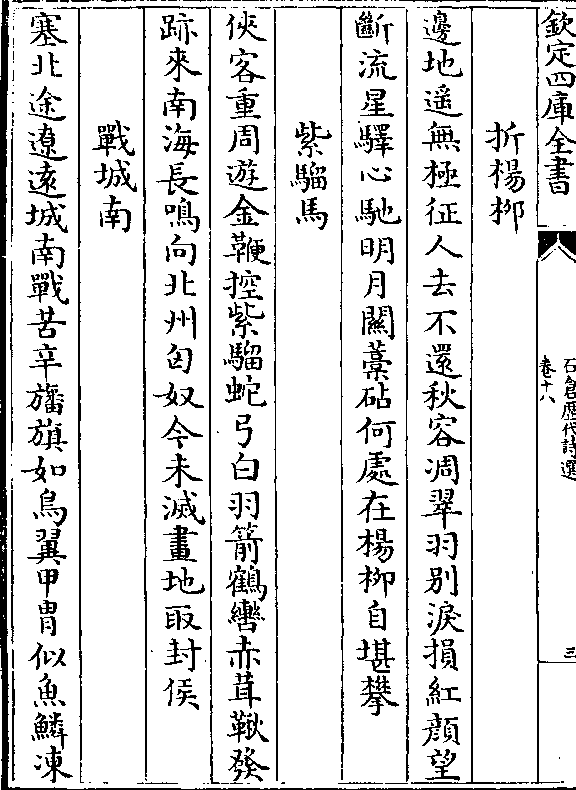 欽定四庫全書
石倉歷代詩選
卷十八
三
折楊柳
邊地遥無極征人去不還秋容凋翠羽别淚損紅顔望
斷流星驛心馳明月關藁砧何處在楊柳自堪攀
紫騮馬
俠客重周遊金鞭控紫騮蛇弓白羽箭鶴轡赤茸鞦發
跡來南海長鳴向北州匈奴今未滅畫地取封侯
戰城南
塞北途遼遠城南戰苦辛旛旗如鳥翼甲胄似魚鱗凍